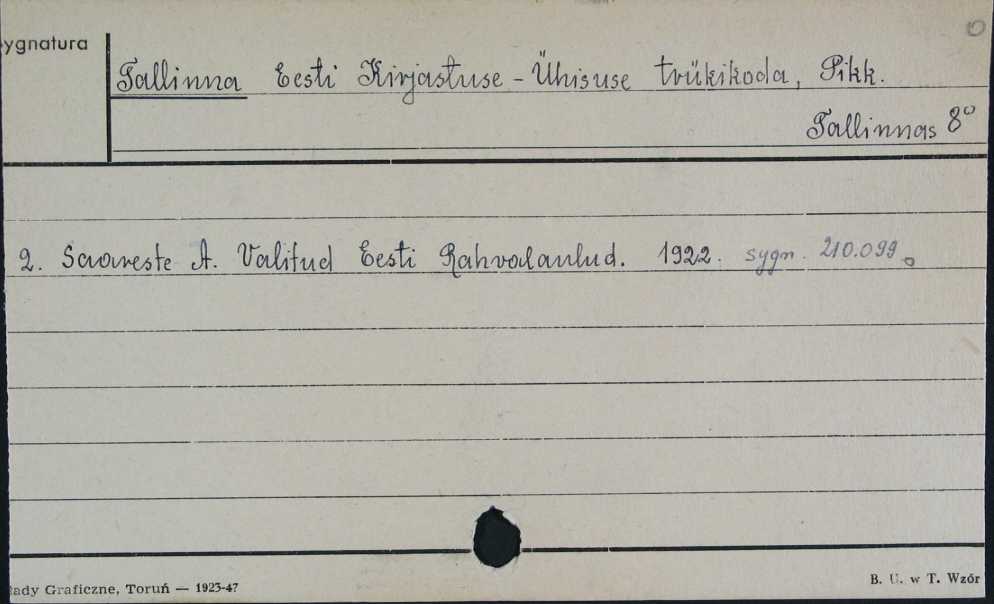 ygnatura
Tallinna Eesti Kirjastuse - Ühisuse trükikoda, Pikk.
Tallinnas 8°
2. Saareste A. Valitud Eesti Rahvalaulud. 1922. sygn. 210.099
łady Graficzne, Toruń — 1923-47
B. U. w T. Wzór